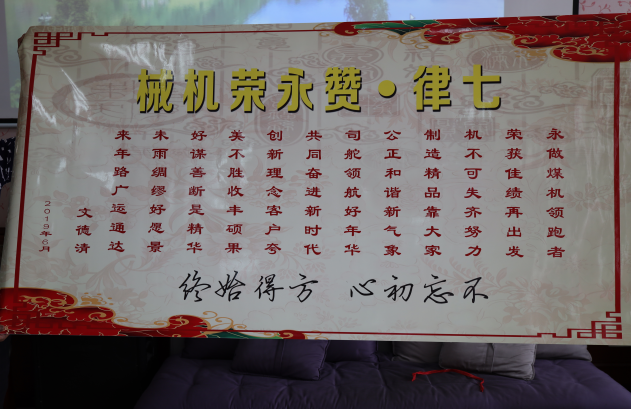 七律•赞永荣机械
永做煤机领跑者
荣获佳绩再出发
机不可失齐努力
制造精品靠大家
公正和谐新气象
司舵领航好年华
共同奋进新时代
创新理念客户夸
美不胜收丰硕果
好谋善断是精华
未雨绸缪好愿景
来年路广运通达
文德清
2019年6月
不忘初心 方得始终